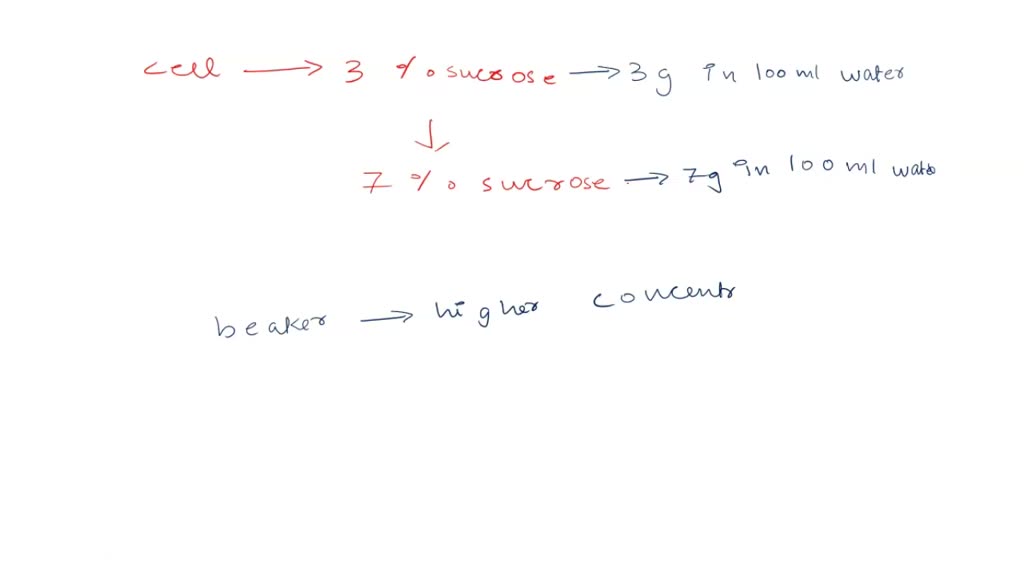 cell → 3 % sucrose → 3g in 100 ml water
↓
7 % sucrose → 7g in 100 ml wate
beaker → higher concentr